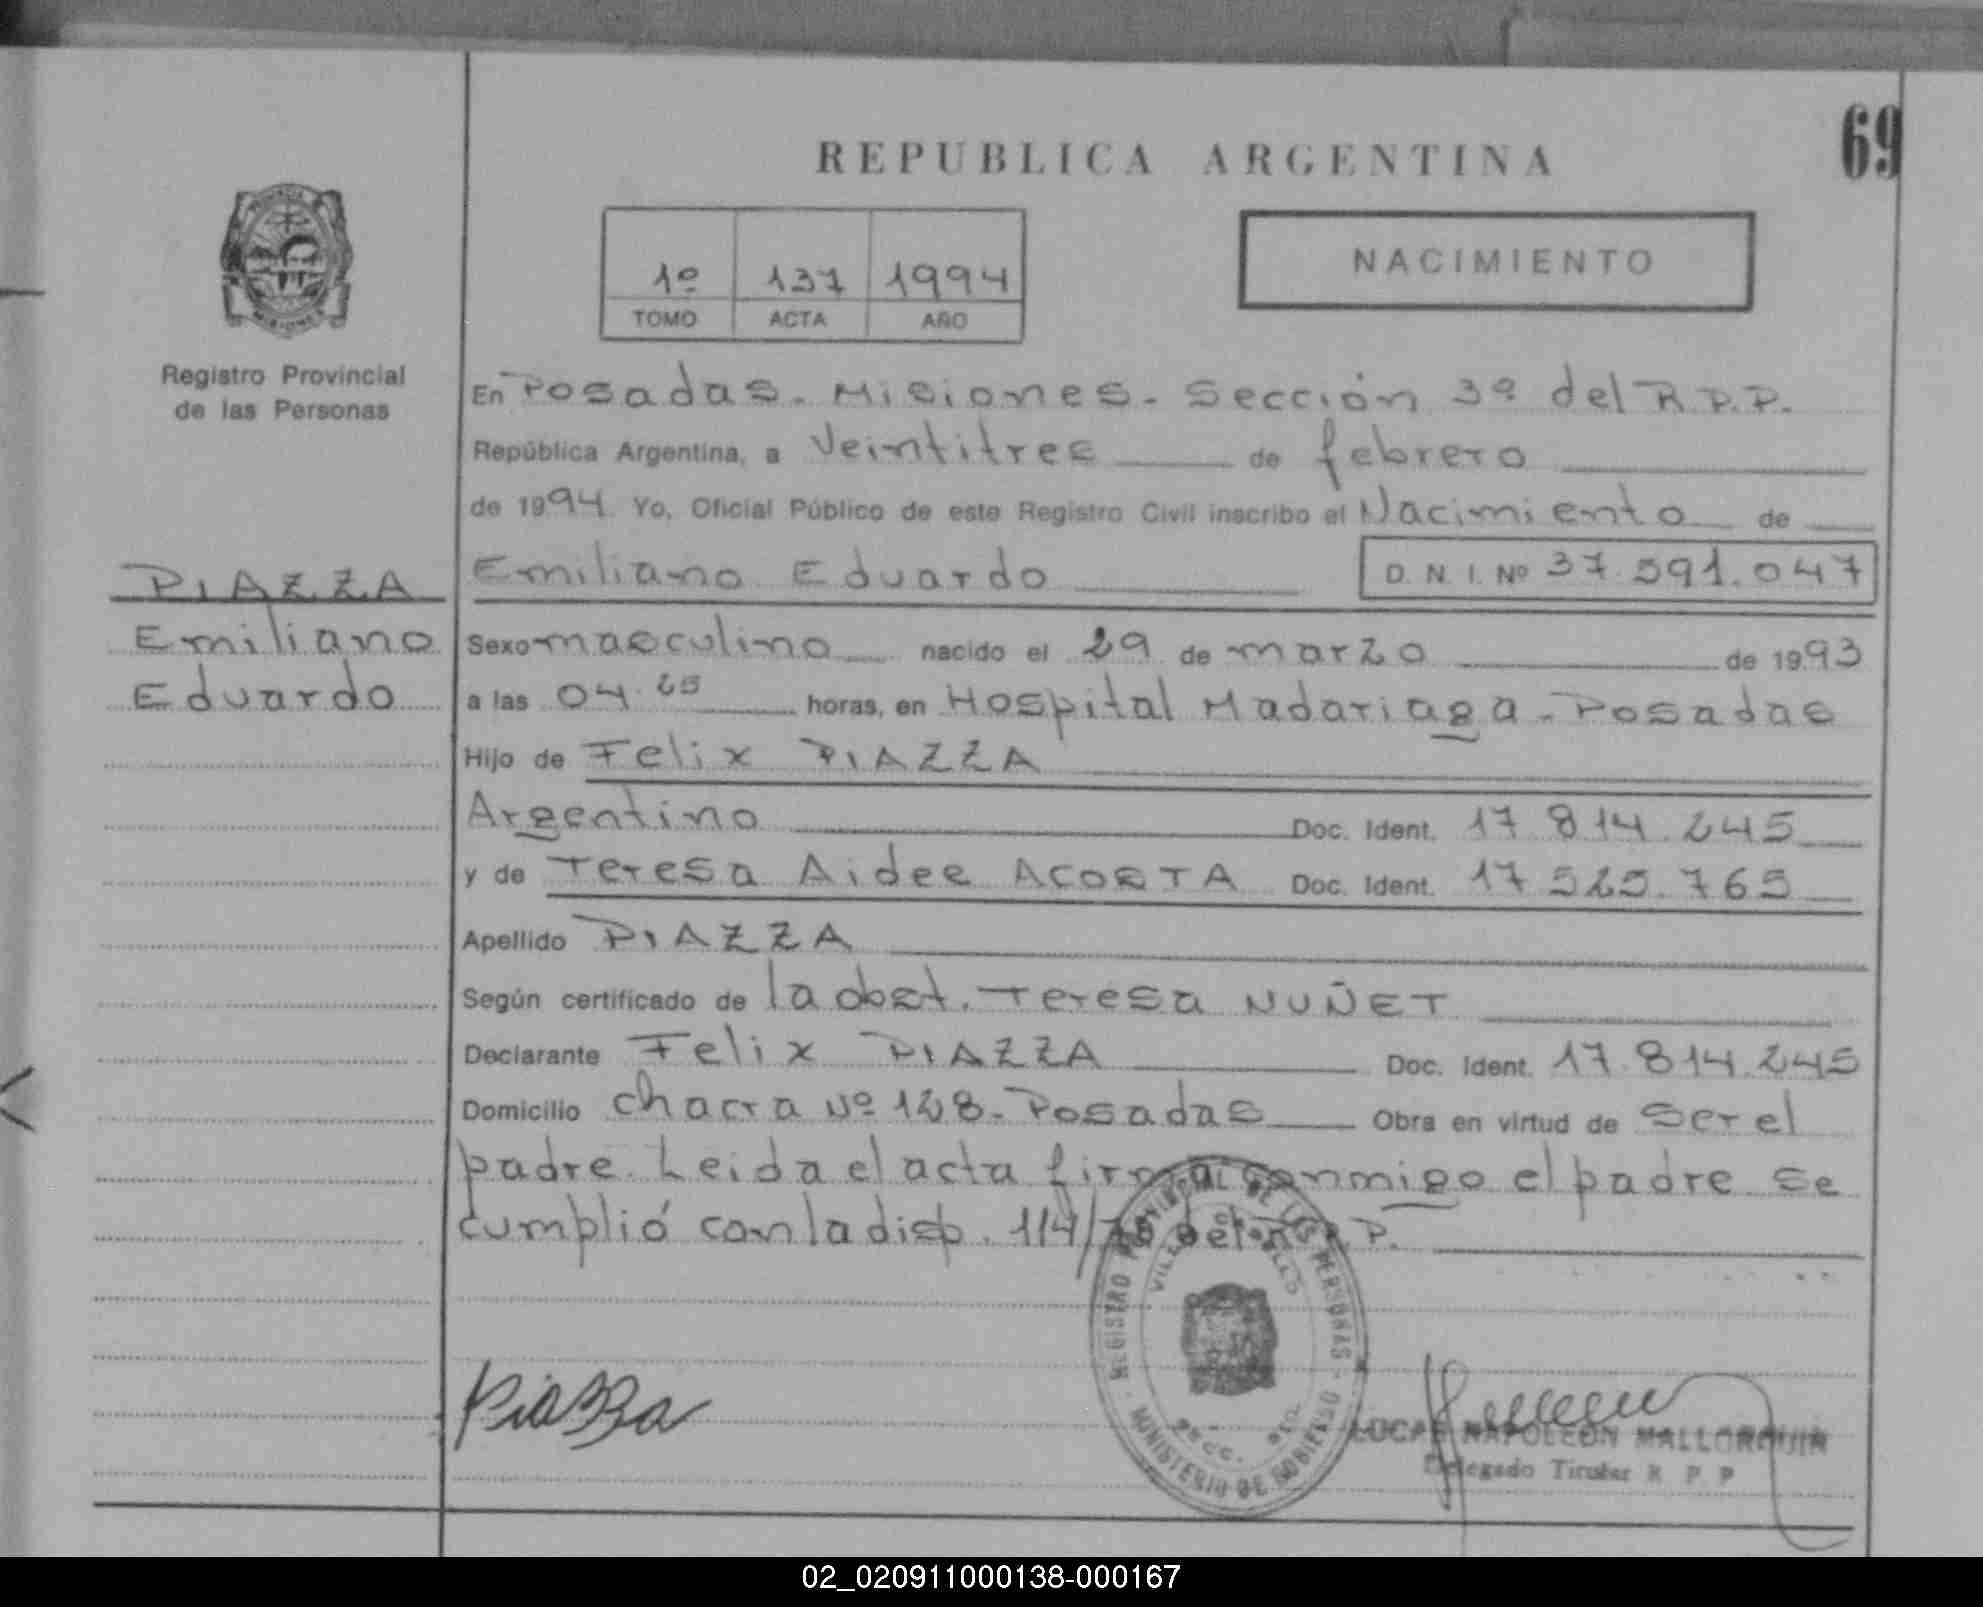 69
REPUBLICA ARGENTINA
1º 137 1994
TOMO ACTA AÑO
NACIMIENTO
Registro Provincial
de las Personas
PIAZZA
Emiliano
Eduardo
En Posadas - Misiones - Sección 3º del R.P.P.
República Argentina, a Veintitres de febrero
de 1994 Yo, Oficial Público de este Registro Civil inscribo el Nacimiento de
Emiliano Eduardo D. N. I. Nº 37.591.047
Sexo masculino nacido el 29 de marzo de 1993
a las 04.25 horas, en Hospital Madariaga - Posadas
Hijo de Felix PIAZZA
Argentino Doc. Ident. 17.814.245
y de Teresa Aidee ACOSTA Doc. Ident. 17.525.765
Apellido PIAZZA
Según certificado de la obst. Teresa NUÑET
Declarante Felix PIAZZA Doc. Ident. 17.814.245
Domicilio chacra Nº 128 - Posadas Obra en virtud de ser el
padre. Leida el acta firma conmigo el padre se
cumplió con la disp. 114/ del R.P.P.
REGISTRO PROVINCIAL DE LAS PERSONAS
MINISTERIO DE GOBIERNO
Piazza
LUCAS NAPOLEON MALLORQUIN
Delegado Titular R P P
02_020911000138-000167